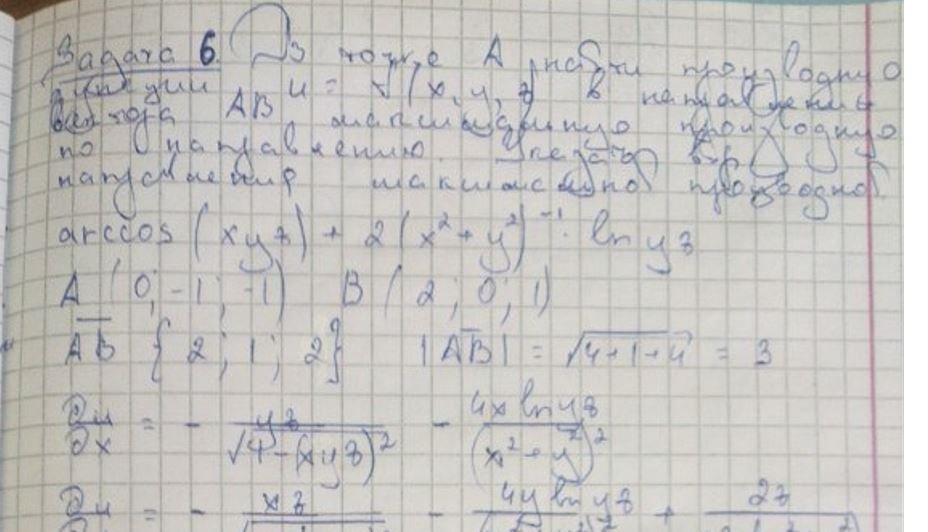 Задача 6. В точке A найти производную
функции u = f(x, y, z) в направлении
вектора AB, максимальную производную
по направлению. Указать
направления максимальной производной.
arccos (xyz) + 2(x² + y²)⁻¹ · ln yz
A (0; -1; -1) B (2; 0; 1)
AB {2; 1; 2} |AB| = √4+1+4 = 3
∂u/∂x = - yz/√1-(xyz)² - 4x ln yz/(x²+y²)²
∂u = - xz - 4y ln yz + 2z